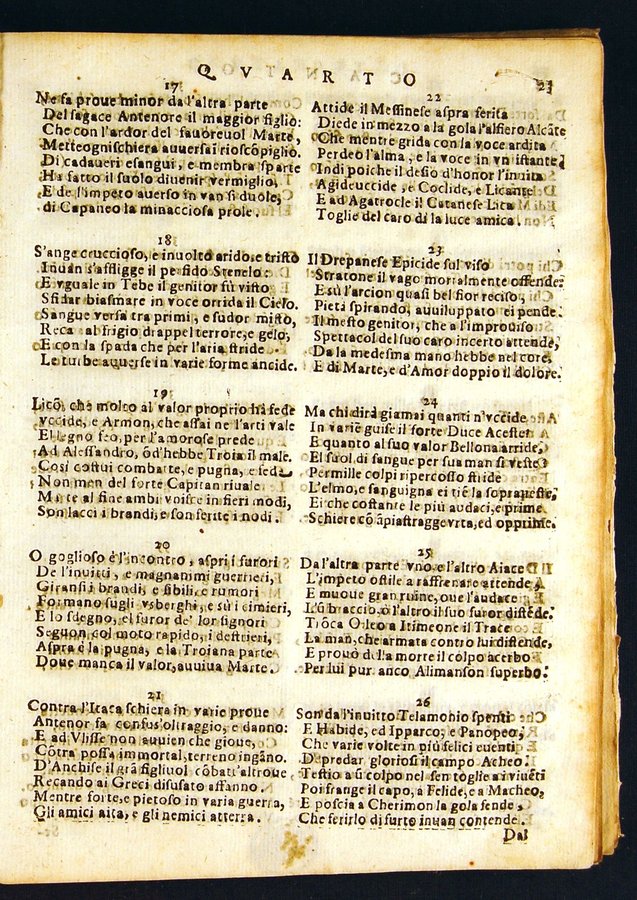 QVARTO
23
17
Ne fa proue minor da l'altra parte
Del sagace Antenore il maggior figlio:
Che con l'ardor del fauoreuol Marte,
Mette ogni schiera auuersa i rio scõpiglio.
Di cadaueri esangui, e membra sparte
Ha fatto il suolo diuenir vermiglio,
E de l'impeto auerso in van si duole,
di Capaneo la minacciosa prole.
18
S'ange cruccioso, e inuolto arido, e tristo
Inuan s'affligge il perfido Stenelo:
E vguale in Tebe il genitor fù visto
Sfidar biasmare in voce orrida il Cielo.
Sangue versa tra primi, e sudor misto,
Reca al frigio drappel terrore, e gelo,
E con la spada che per l'aria stride
Le turbe auuerse in varie forme ancide.
19
Licõ, che molto al valor proprio hà fede
vccide, e Armon, che assai ne l'arti vale
El legno feo, per l'amorose prede
Ad Alessandro, õd'hebbe Troia il male.
Così costui combatte, e pugna, e fede
Non men del forte Capitan riuale
Ma te al fine ambi voisce in fieri modi,
Son lacci i brandi, e son ferite i nodi.
20
O goglioso è l'incontro, aspri i furori
De l'inuitti, e magnanimi guerrieri,
Giransi i brandi, e sibili, e rumori
Formano sugli vsberghi, e sù i cimieri,
E lo sdegno, el furor de' lor signori
Seguon col moto rapido, i destrieri,
Aspra è la pugna, e la Troiana parte
Doue manca il valor, auuiua Marte.
21
Contra l'Itaca schiera in varie proue
Antenor fa confus'oltraggio, e danno:
E ad Vlisse non auuien che gioue,
Cõtra possa immortal, terreno ingãno.
D'Anchise il grã figliuol cõbatt'altroue,
Recando ai Greci disusato affanno.
Mentre forte, e pietoso in varia guerra,
Gli amici aita, e gli nemici atterra.
22
Attide il Messinese aspra ferita
Diede in mezzo a la gola l'alfiero Alcãte
Che mentre grida con la voce ardita
Perdeo l'alma, e la voce in vn istante,
Indi poiche il desio d'honor l'inuita
Agide uccide, e Coclide, e Licante
E ad Agatrocle il Catanese Lita
Toglie del caro di la luce amica.
23
Il Drepanese Epicide sul viso
Stratone il vago mortalmente offende:
E sù l'arcion quasi bel fior reciso,
Pietà spirando, auuiluppato ei pende.
Il mesto genitor, che a l'improuiso
Spettacol del suo caro incerto attende,
Da la medesma mano hebbe nel core,
E di Marte, e d'Amor doppio il dolore.
24
Ma chi dirà giamai quanti n'vccide
In varie guise il forte Duce Aceste:
E quanto al suo valor Bellona arride,
El suol di sangue per sua man si veste
Per mille colpi ripercosso stride
L'elmo, e sanguigna ei tiẽ la soprapeste,
Ei che costante le più audaci, e prime
Schiere cõ apiastra gge vrta, ed opprime.
25
Da l'altra parte vno e l'altro Aiace
L'impeto ostile a raffrenare attende
E muoue gran ruine, oue l'audace
L'ũ braccio, o l'altro il suo furor distẽde.
Trõca Oileo a Itimeone il Trace
La man, che armata contro lui distende,
E prouò de la morte il colpo acerbo
Per lui pur anco Alimanson superbo.
26
Son da l'inuitto Telamonio spenti
E Habide, ed Ipparco, e Panopeo,
Che varie volte in più felici euenti
Depredar gloriosi il campo Acheo.
Testio a sũ colpo nel sen toglie ai viuẽti
Poi frange il capo, a Felide, e a Macheo,
E poscia a Cherimon la gola fende,
Che ferirlo di furto inuan contende.
Dal